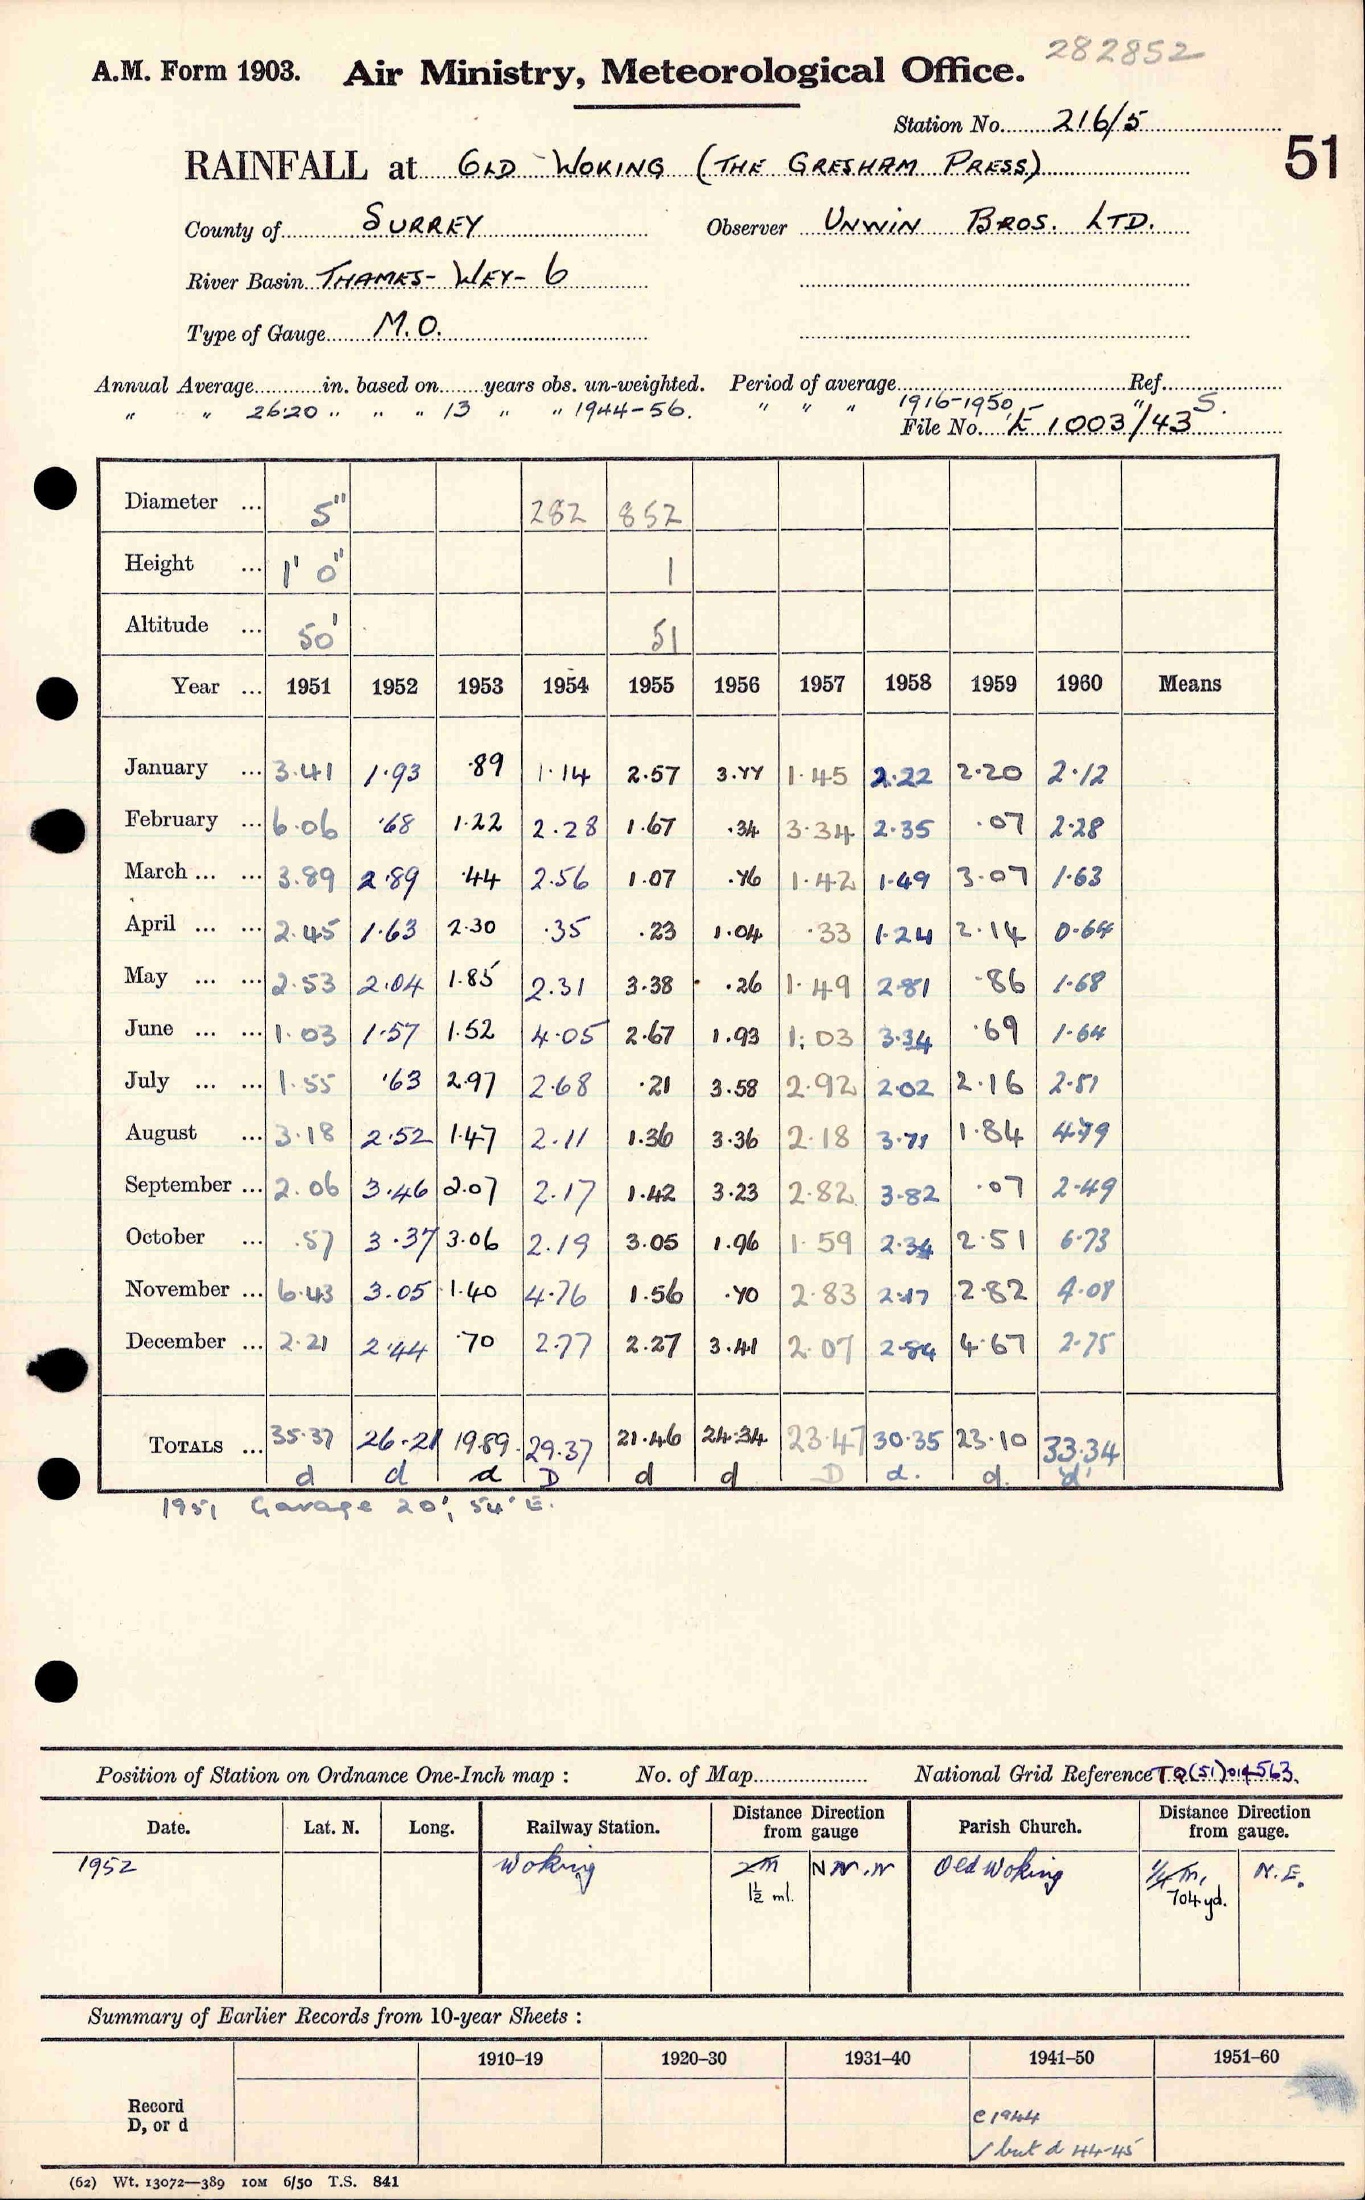 282852
A.M. Form 1903. Air Ministry, Meteorological Office.
Station No. 216/5
51
RAINFALL at OLD WOKING (THE GRESHAM PRESS)
County of SURREY Observer UNWIN BROS. LTD.
River Basin THAMES- WEY- 6
Type of Gauge M.O.
Annual Average in. based on years obs. un-weighted. Period of average Ref.
" " 26.20 " " " 13 " " 1944-56. " " " 1916-1950 " S.
File No. E 1003/43
Diameter ... 5" 282 852
Height ... 1' 0" 1
Altitude ... 50' 51
Year ... 1951 1952 1953 1954 1955 1956 1957 1958 1959 1960 Means
January ... 3.41 1.93 .89 1.14 2.57 3.77 1.45 2.22 2.20 2.12
February ... 6.06 .68 1.22 2.28 1.67 .34 3.34 2.35 .07 2.28
March ... ... 3.89 2.89 .44 2.56 1.07 .76 1.42 1.49 3.07 1.63
April ... ... 2.45 1.63 2.30 .35 .23 1.04 .33 1.24 2.14 0.64
May ... ... 2.53 2.04 1.85 2.31 3.38 .26 1.49 2.81 .86 1.68
June ... ... 1.03 1.57 1.52 4.05 2.67 1.93 1.03 3.34 .69 1.64
July ... ... 1.55 .63 2.97 2.68 .21 3.58 2.92 2.02 2.16 2.51
August ... 3.18 2.52 1.47 2.11 1.36 3.36 2.18 3.71 1.84 4.79
September ... 2.06 3.46 2.07 2.17 1.42 3.23 2.82 3.82 .07 2.49
October ... .57 3.37 3.06 2.19 3.05 1.96 1.59 2.34 2.51 6.73
November ... 6.43 3.05 1.40 4.76 1.56 .70 2.83 2.17 2.82 4.08
December ... 2.21 2.44 .70 2.77 2.27 3.41 2.07 2.84 4.67 2.75
TOTALS ... 35.37 26.21 19.89 29.37 21.46 24.34 23.47 30.35 23.10 33.34
d d d D d d D d. d. d
1951 Garage 20', 54' E.
Position of Station on Ordnance One-Inch map : No. of Map National Grid Reference TQ(51)014563.
Date. Lat. N. Long. Railway Station. Distance from gauge Direction Parish Church. Distance from gauge. Direction
1952 Woking 2m NW.W Old Woking 1/4 m. N.E.
1½ ml. 704 yd.
Summary of Earlier Records from 10-year Sheets :
1910–19 1920–30 1931–40 1941–50 1951–60
Record
D, or d
c 1944
✓ but d 44-45
(62) Wt. 13072—389 10M 6/50 T.S. 841